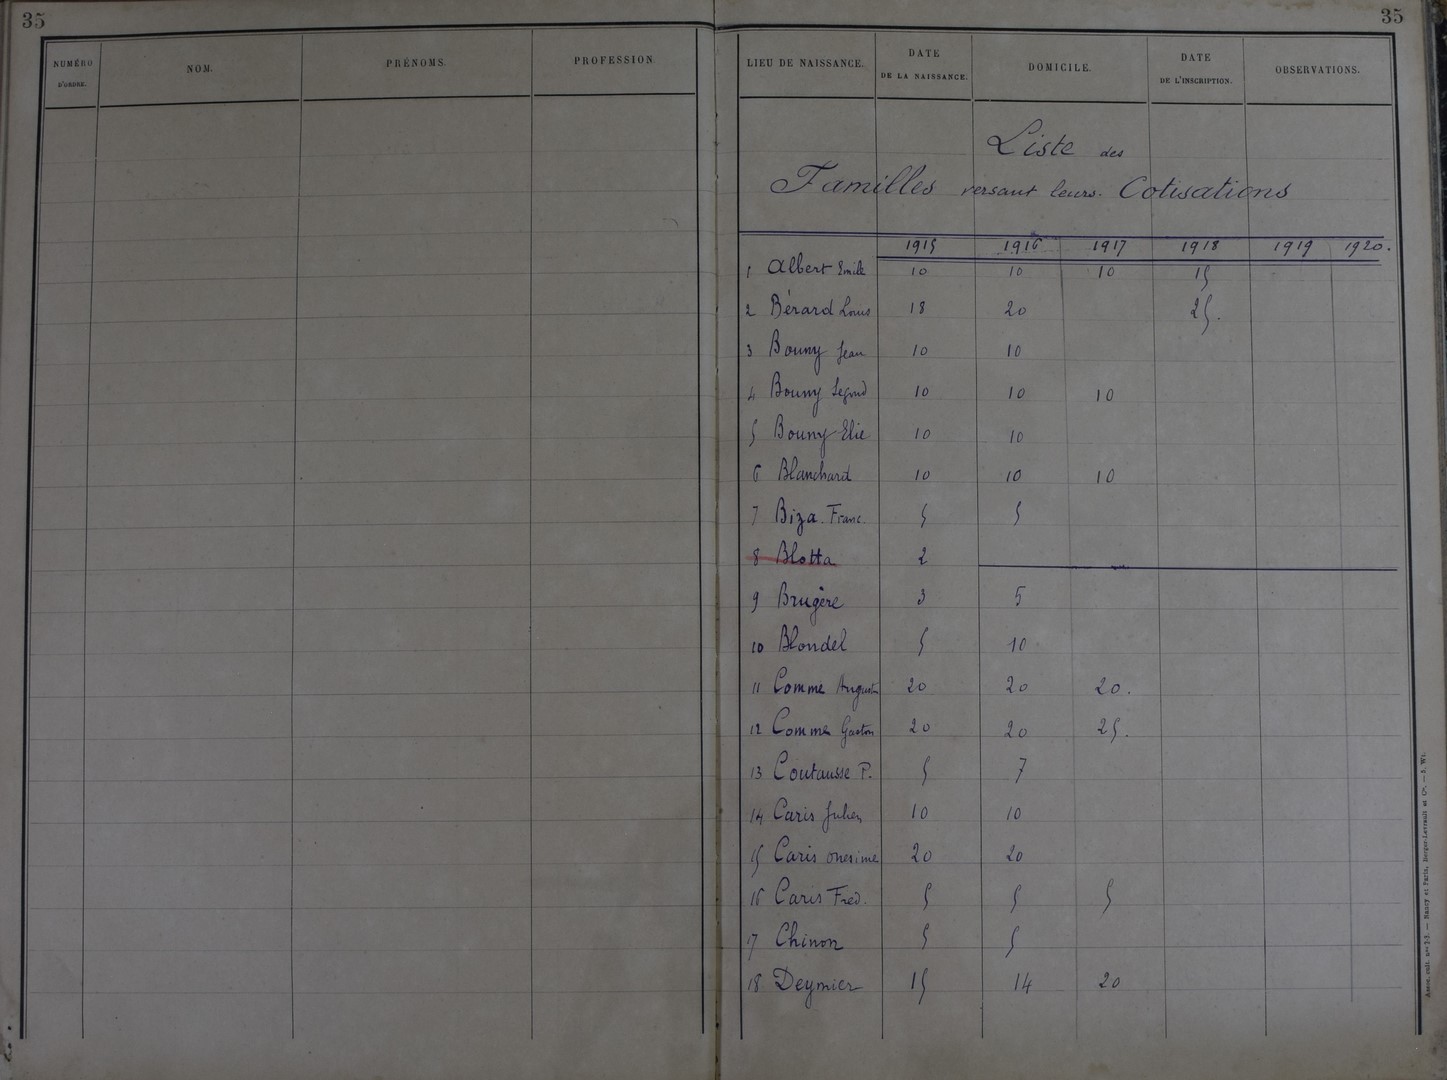 35
NUMÉRO D'ORDRE. NOM. PRÉNOMS. PROFESSION
35
LIEU DE NAISSANCE. DATE DE LA NAISSANCE. DOMICILE. DATE DE L'INSCRIPTION. OBSERVATIONS.
Liste des
Familles versant leurs Cotisations
1915 1916 1917 1918 1919 1920.
1 Albert Emile 10 10 10 15
2 Bérard Louis 18 20 25.
3 Bouny Jean 10 10
4 Bouny Segond 10 10 10
5 Bouny Elie 10 10
6 Blanchard 10 10 10
7 Biza. Franc. 5 5
8 Blotta 2
9 Brugère 3 5
10 Blondel 5 10
11 Comme Augustin 20 20 20.
12 Comme Gaston 20 20 25.
13 Coutausse P. 5 7
14 Caris Julien 10 10
15 Caris onesime 20 20
16 Caris Fred. 5 5 5
17 Chinon 5 5
18 Deymier 15 14 20